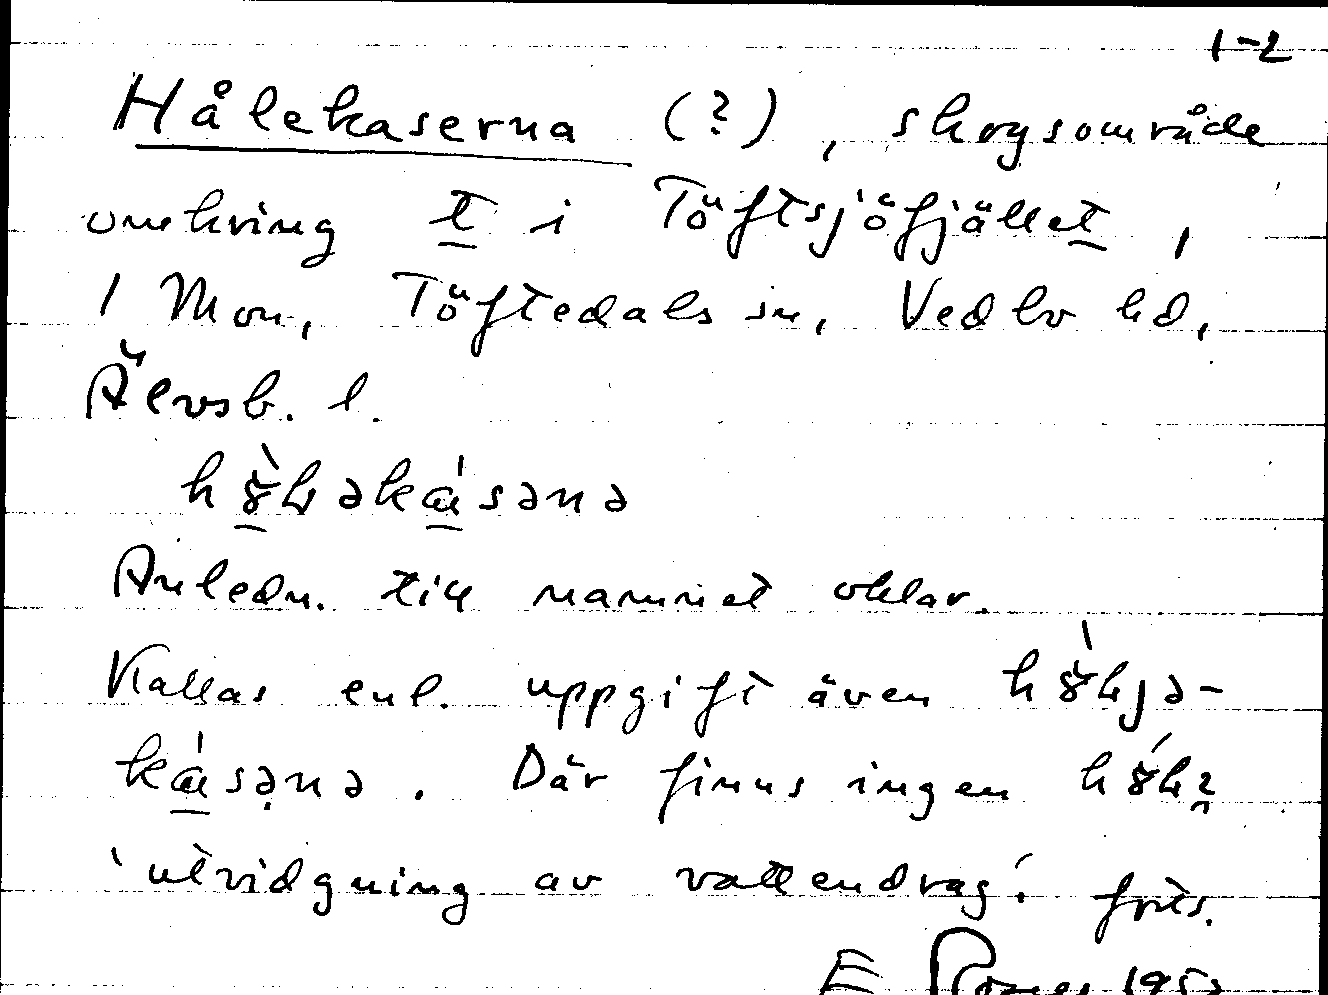 1-2
Hålekaserna (?), skogsområde
omkring t i Töftsjöfjället,
1 Mon, Töftedals sn, Vedbo hd,
Älvsb. l.
Anledn. till namnet oklar.
Kallas enl. uppgift även
Där finns ingen
'utvidgning av vattendrag'. forts.
E 195